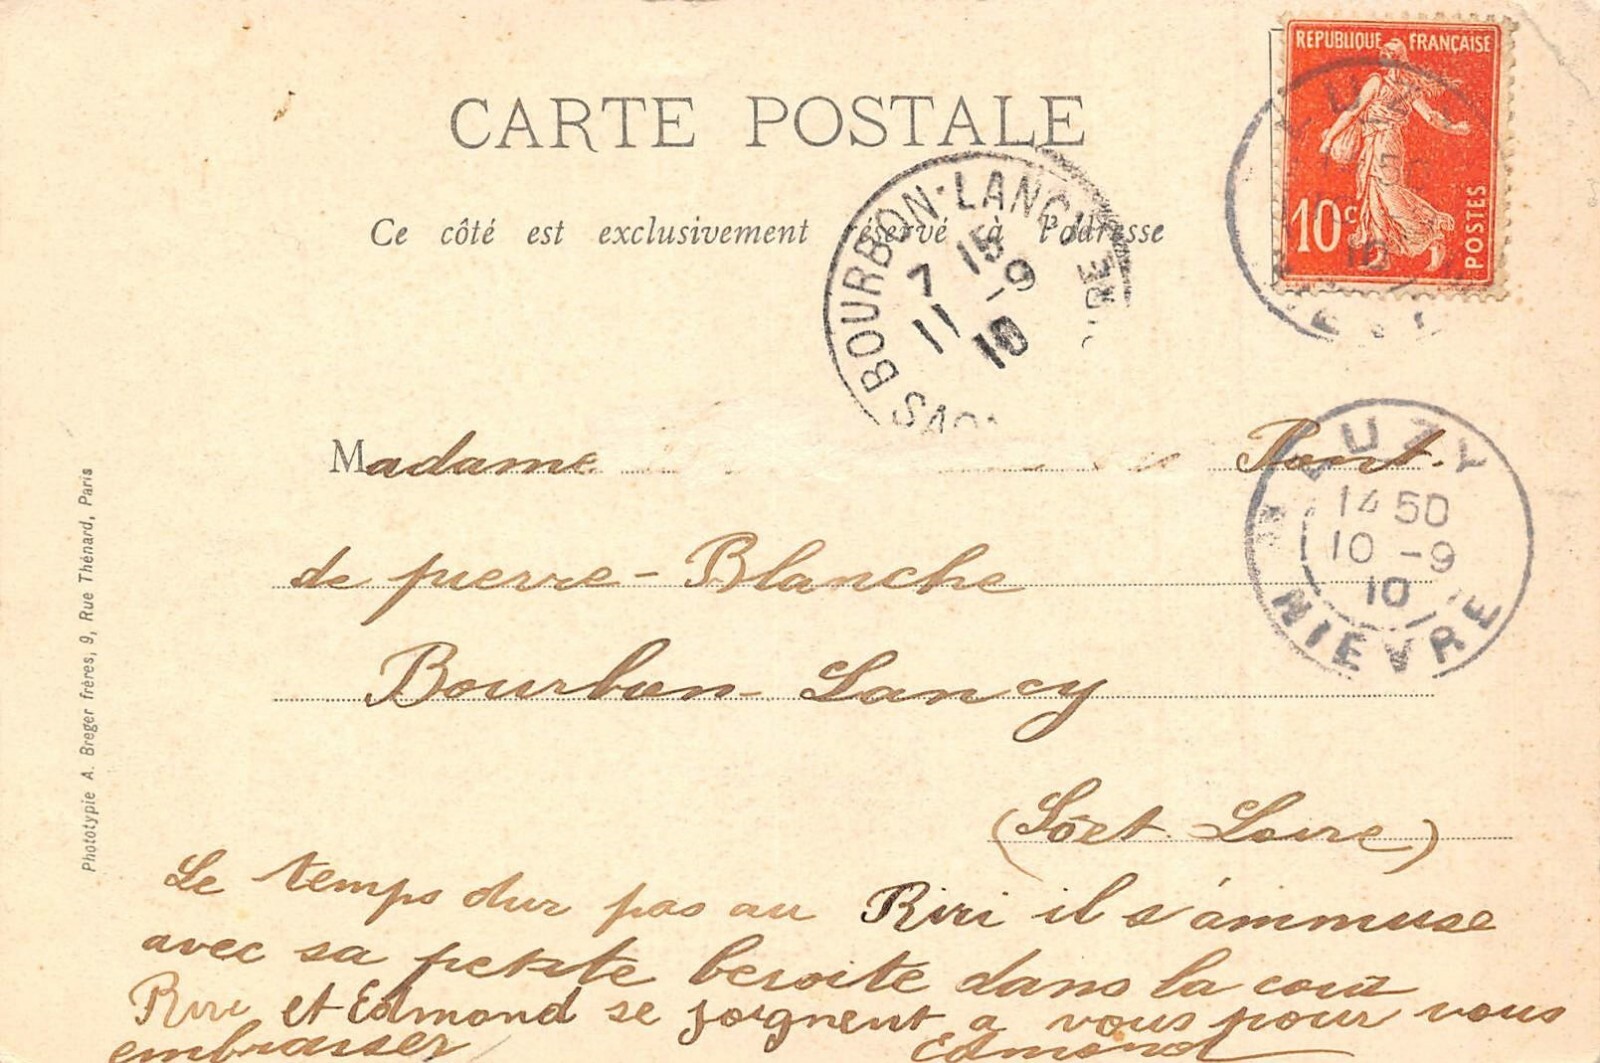 REPUBLIQUE FRANÇAISE
10c
POSTES
CARTE POSTALE
Ce côté est exclusivement réservé à l'adresse
BOURBON-LANCY
7 15
11 -9
10
LUZY
14 50
10 -9
10
NIEVRE
Madame Pont.
de pierre-Blanche
Bourbon-Lancy
(Sôet Loire)
Le temps dur pas au Riri il s'ammuse
avec sa petite beroite dans la cour
Riri et Edmond se joignent a vous pour vous
embrasser Edmond
Phototypie A. Breger frères, 9, Rue Thénard, Paris